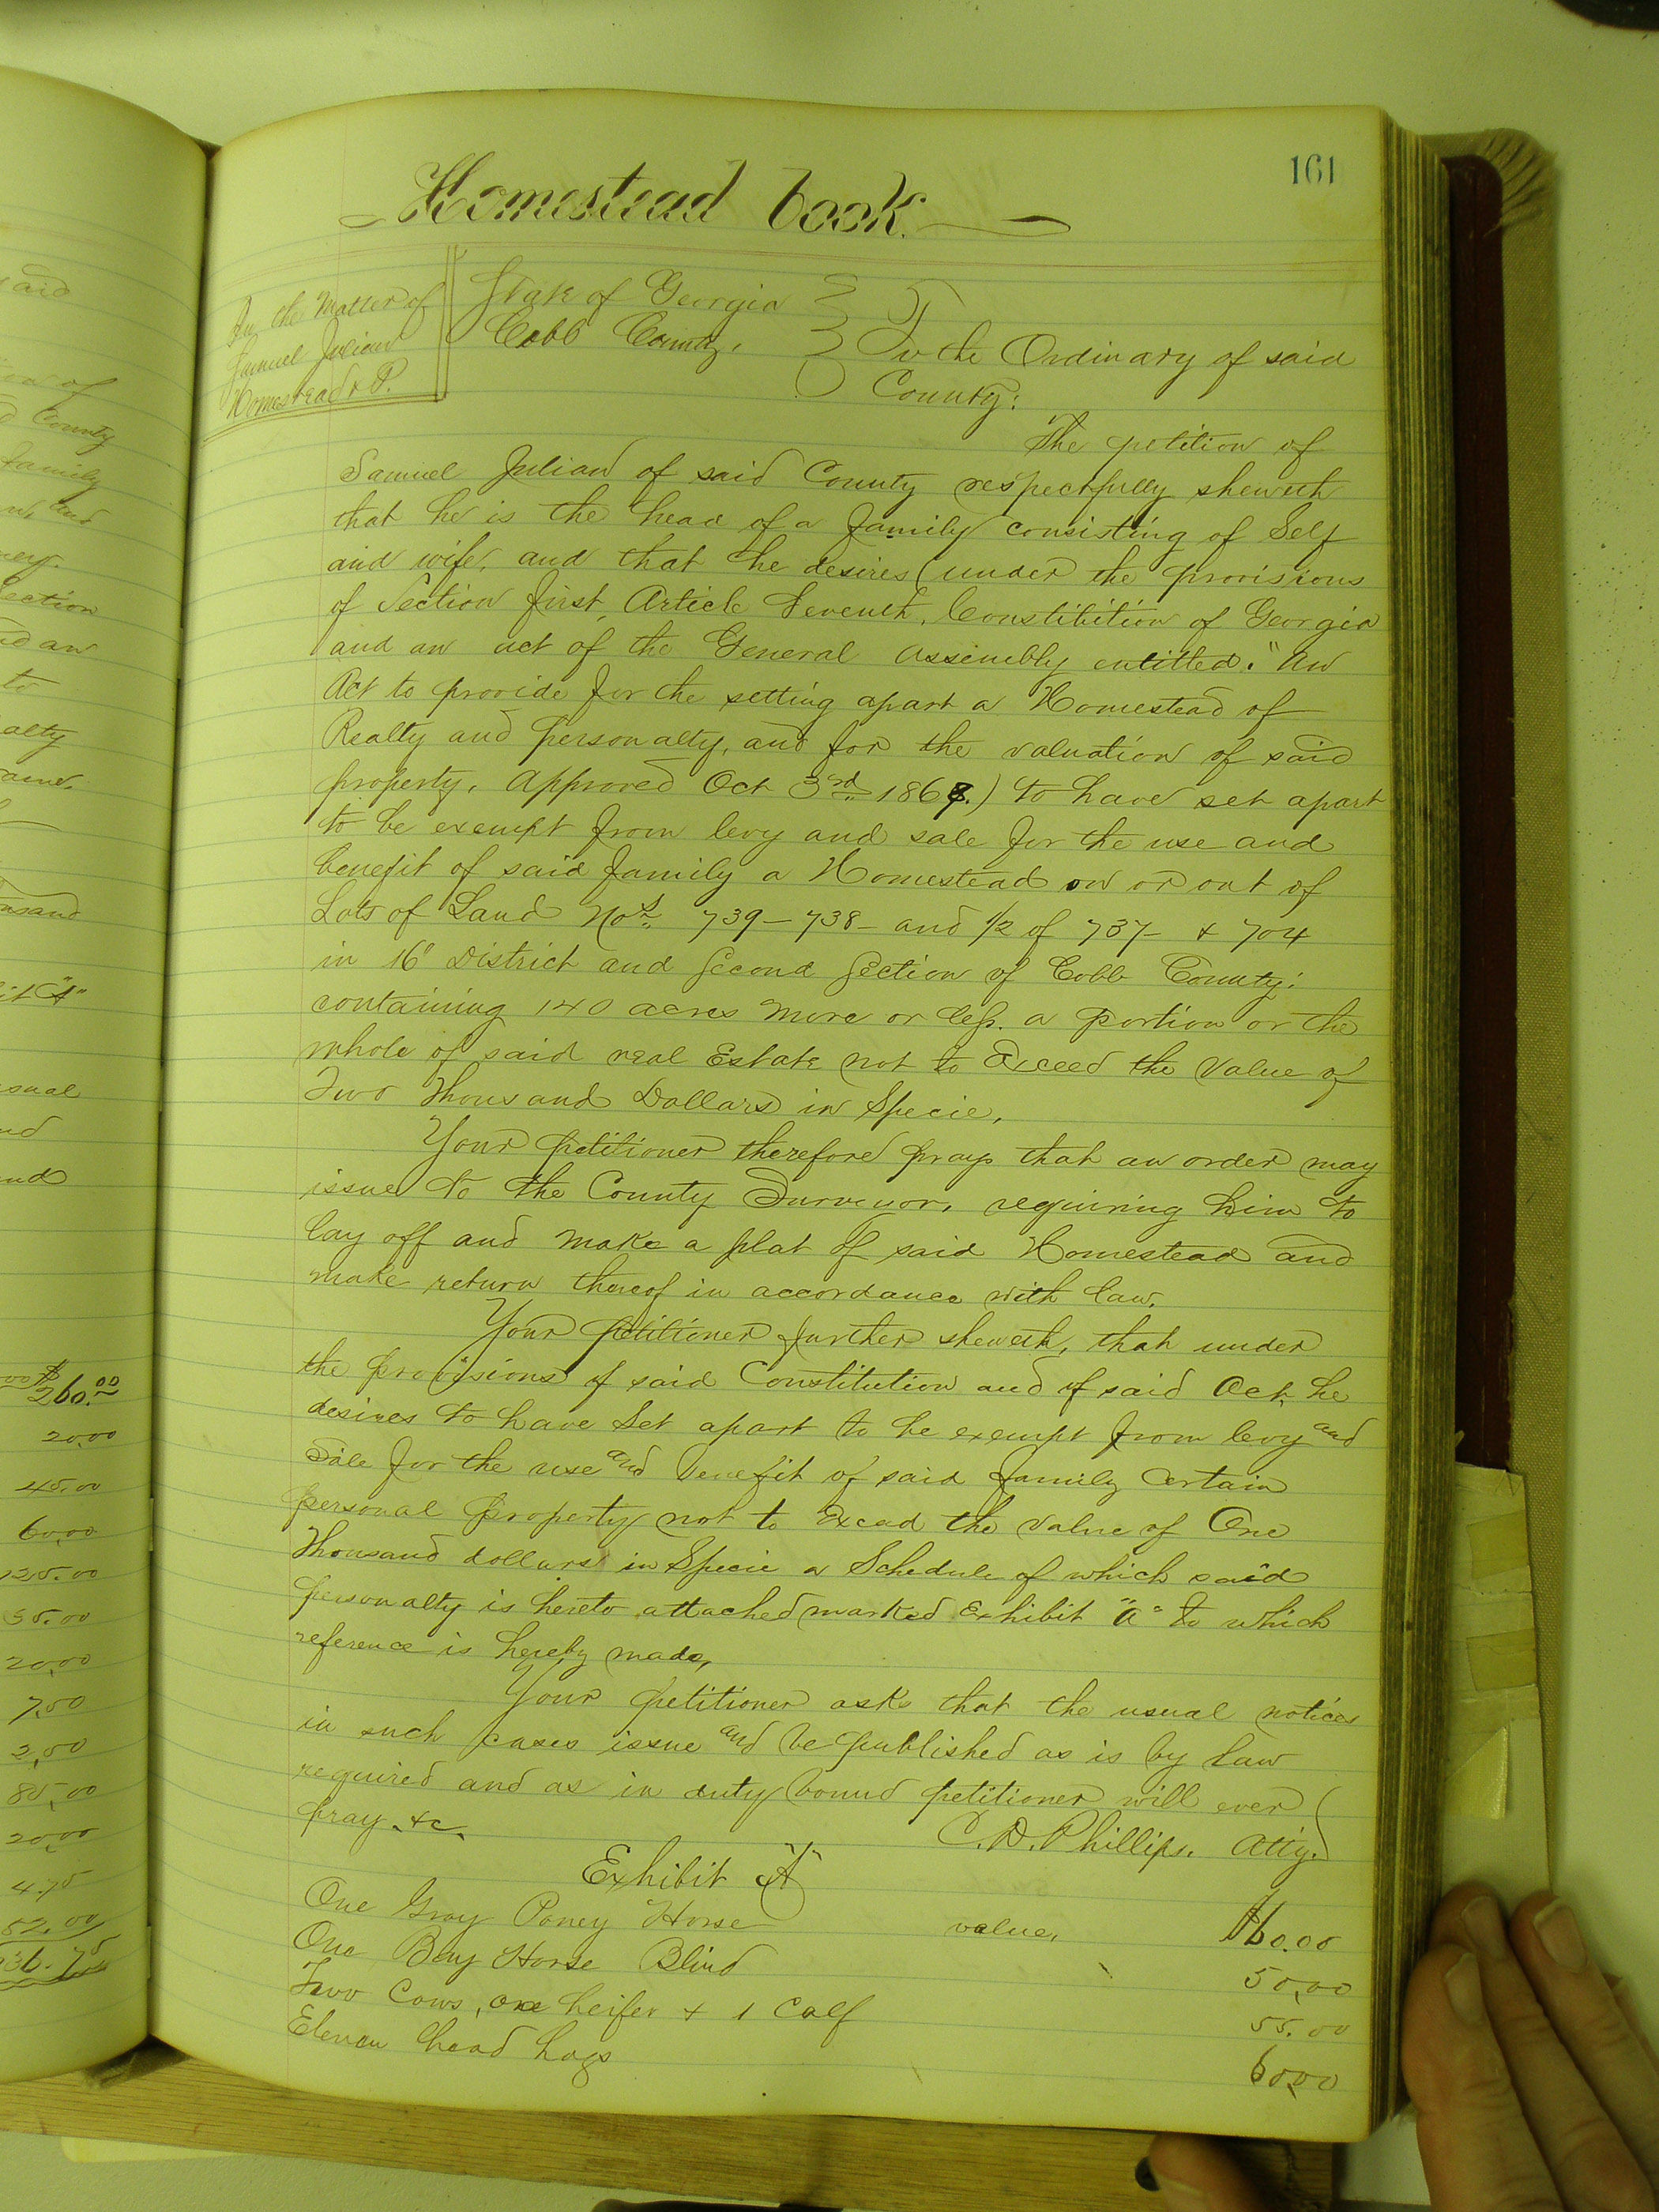 161
Homestead book.
In the Matter of
Samuel Julian
Homestead & P.
State of Georgia
Cobb County.
To the Ordinary of said
County:
The petition of
Samuel Julian of said County respectfully sheweth
that he is the head of a family consisting of Self
and wife, and that he desires (under the provisions
of Section first, Article Seventh, Constitition of Georgia
and an act of the General Assembly entitled. "An
Act to provide for the setting apart a Homestead of
Realty and personalty, and for the valuation of said
property, Approved Oct 3rd 1868.) to have set apart
to be exempt from levy and sale for the use and
benefit of said family a Homestead on or out of
Lots of Land Nos 739 - 738 - and 1/2 of 737 - & 704
in 16" District and Second Section of Cobb County;
containing 140 acres more or less. a portion or the
whole of said real Estate not to Exceed the Value of
Two Thousand Dollars in Specie,
Your petitioner therefore prays that an order may
issue to the County Surveyor, requiring him to
lay off and make a plat of said Homestead and
make return thereof in accordance with law.
Your petitioner further sheweth, that under
the provisions of said Constitution and of said Act, he
desires to have Set apart to be exempt from levy and
Sale for the use and benefit of said family Certain
personal property not to Excead the value of One
Thousand dollars in Specie a Schedule of which said
personalty is hereto attached marked Exhibit "A" to which
reference is hereby made,
Your petitioner asks that the usual notices
in such cases issue and be published as is by Law
required and as in duty bound petitioner will ever
pray &c.
C. D. Phillips. Atty.
Exhibit "A"
One Gray Poney Horse value, $60.00
One Bay Horse Blind 50,00
Two Cows, one heifer & 1 Calf 55.00
Eleven head hogs 60,00
said
of
County
family
and
Section
an
to
alty
"A"
sual
and
$260.00
20.00
45.00
60,00
20,00
7,50
2,50
85,00
20,00
4.75
52.00